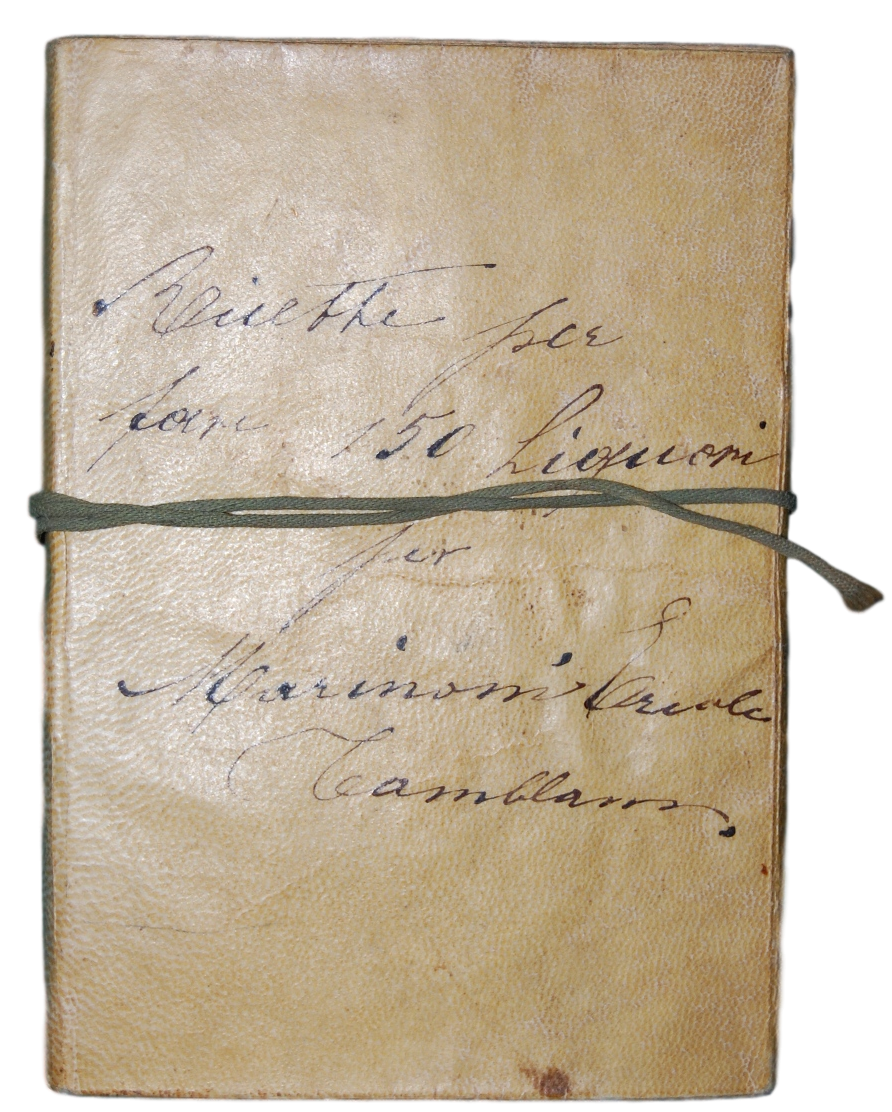 Ricette per
fare 150 Liquori
per
Marinoni Ercole